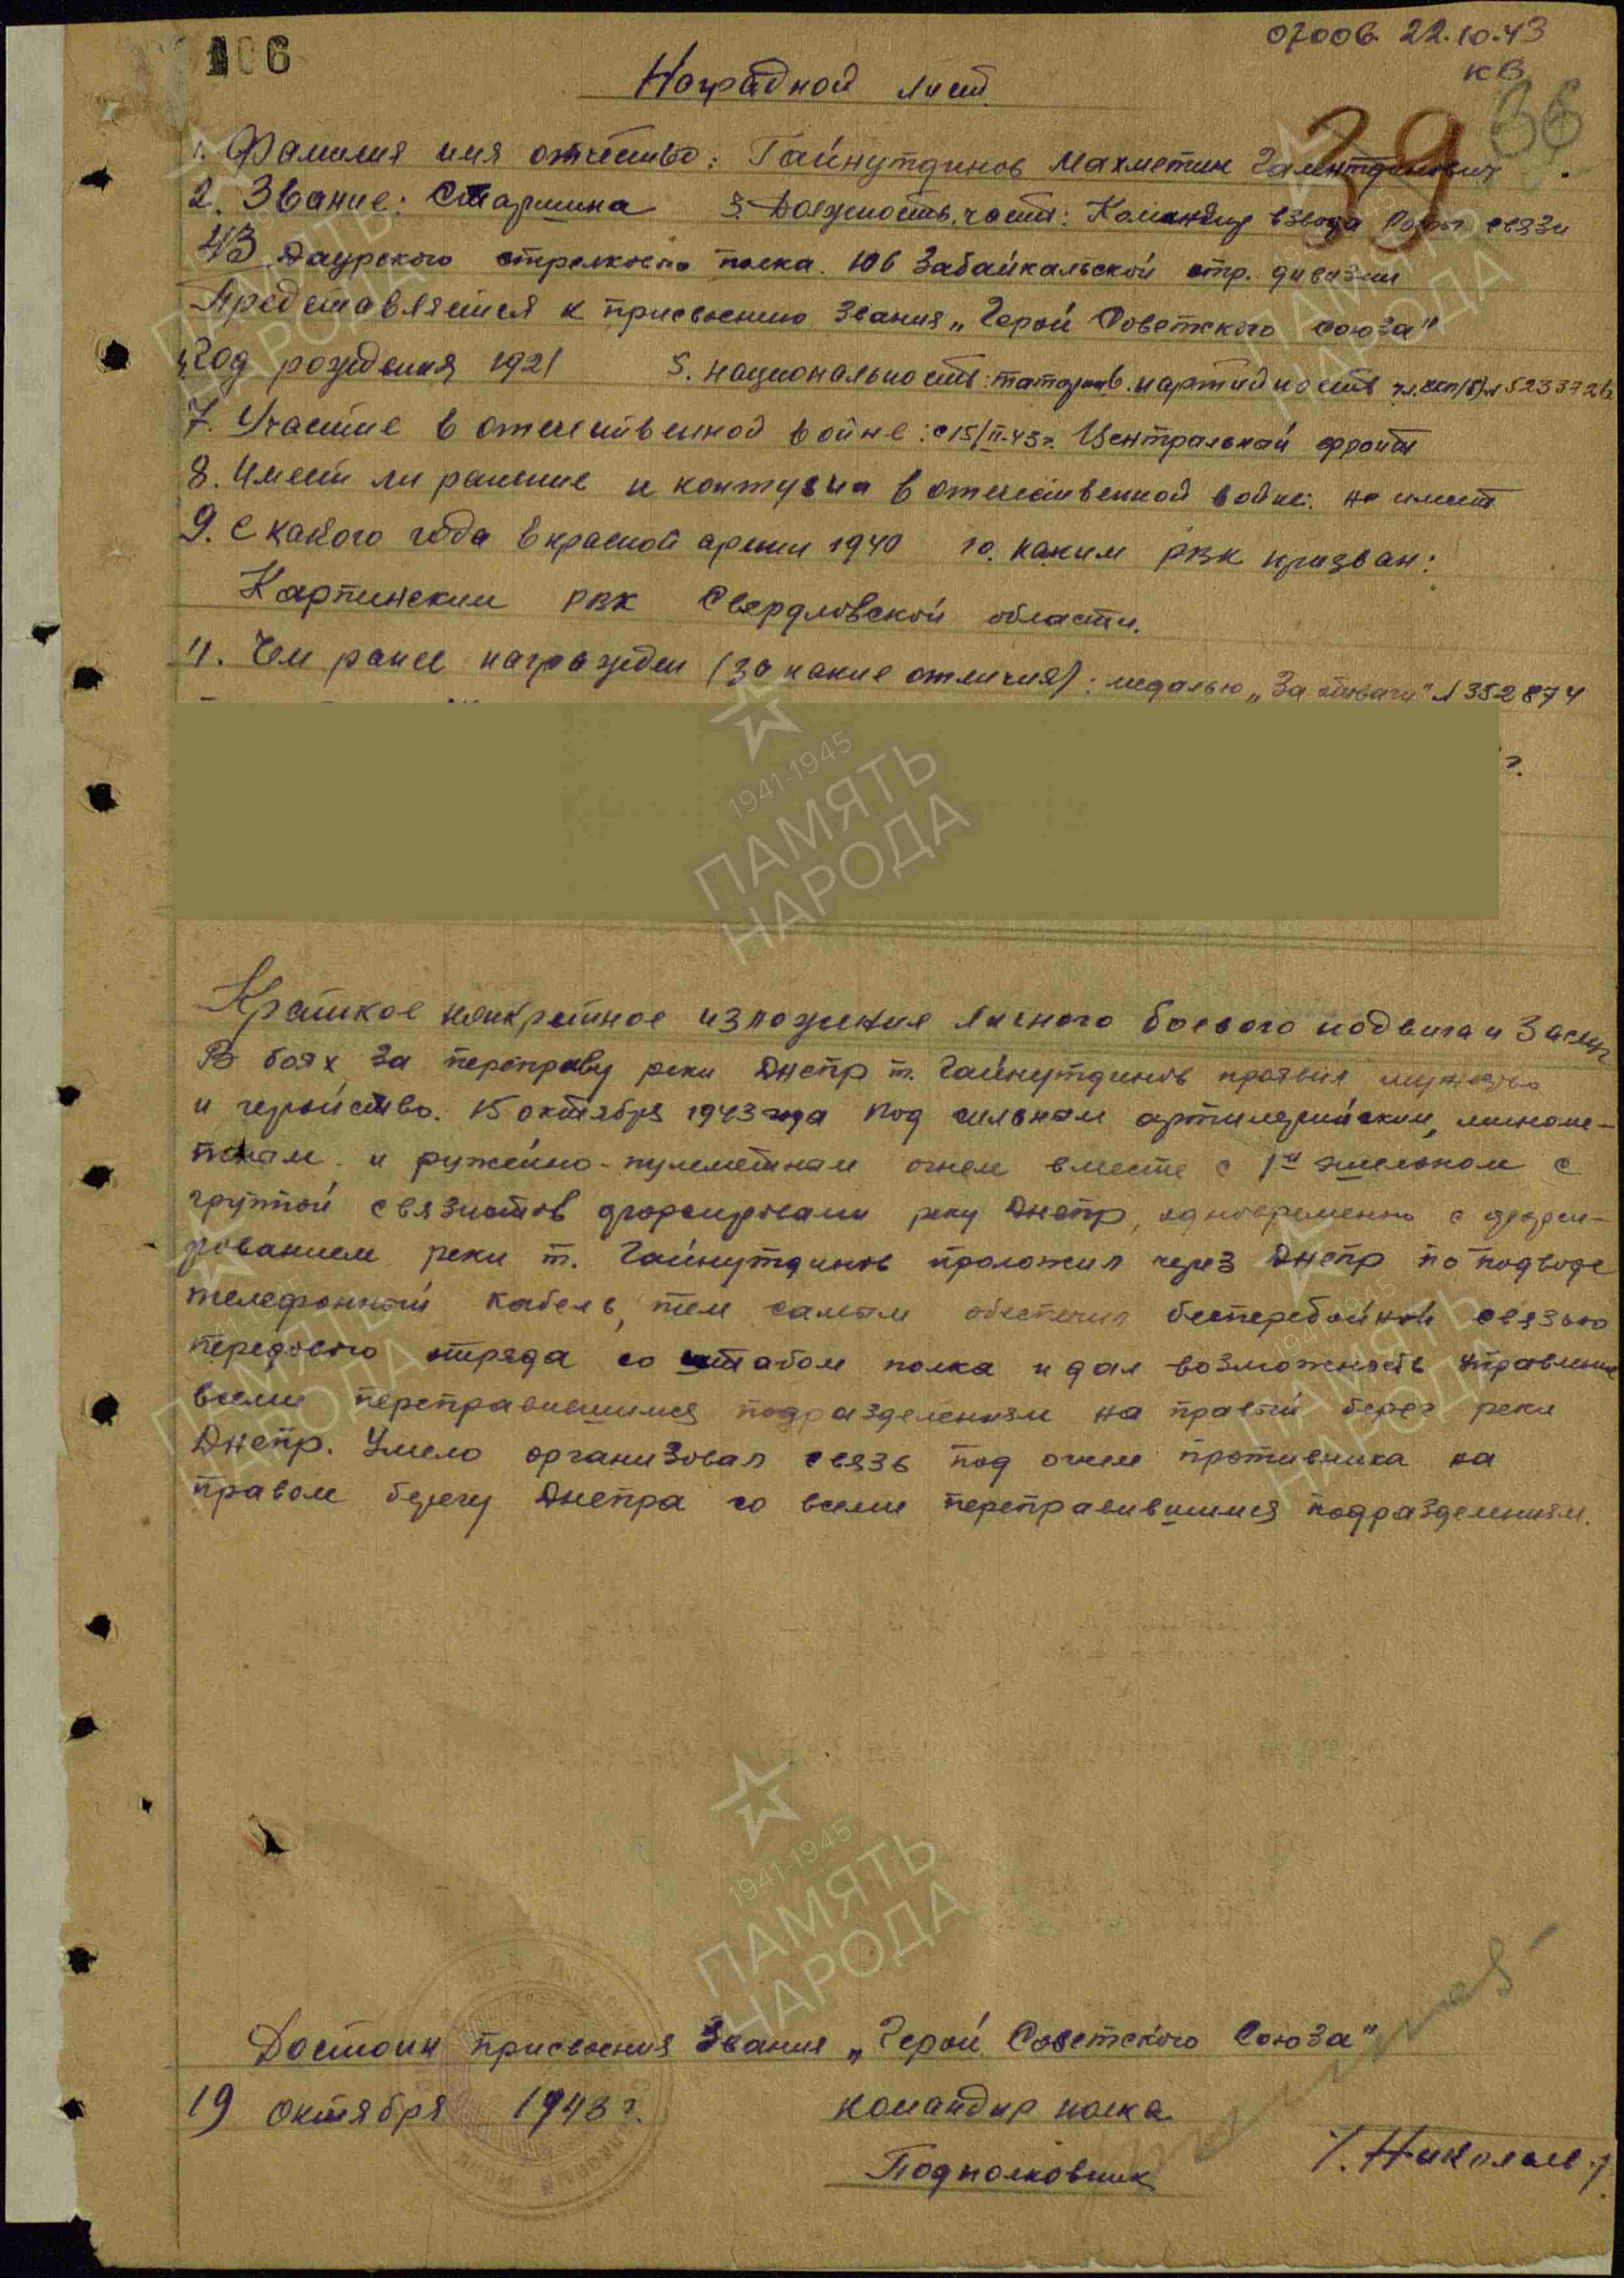 106
07006. 22.10.43
КВ
39 36
Наградной лист
1. Фамилия имя отчество: Гайнутдинов Махметин Галентдинович
2. Звание: Старшина 3. Должность, часть: Командир взвода Роты связи
43 Даурского стрелкового полка. 106 Забайкальской стр. дивизии
Представляется к присвоению звания „Герой Советского Союза"
4. Год рождения 1921 5. национальность: татарин 6. партийность чл. ВКП(б) № 5233726
7. Участие в отечественной войне: с 15/II-43 г. Центральный фронт
8. Имеет ли ранение и контузия в отечественной войне: не имеет
9. С какого года в красной армии 1940 10. каким РВК призван:
Карпинским РВК Свердловской области.
11. Чем ранее награжден (за какие отличия): медалью „За отвагу" № 352874
г.
Краткое конкретное изложения личного боевого подвига и заслуг
В боях за переправу реки Днепр т. Гайнутдинов проявил мужество
и геройство. 15 октября 1943 года под сильным артилерийским, миноме-
тным и ружейно-пулеметным огнем вместе с 1ым эшелоном с
группой связистов форсировали реку Днепр, одновременно с форси-
рованием реки т. Гайнутдинов проложил через Днепр по подводе
телефонный кабель, тем самым обеспечил бесперебойной связью
передового отряда со штабом полка и дал возможность управление
всеми переправившимся подразделениям на правый берег реки
Днепр. Умело организовал связь под огнем противника на
правом берегу Днепра со всеми переправившимся подразделениям.
Достоин присвоения Звания „Герой Советского Союза"
19 октября 1943 г. командир полка
Подполковник Николаев
ПАМЯТЬ НАРОДА
1941-1945